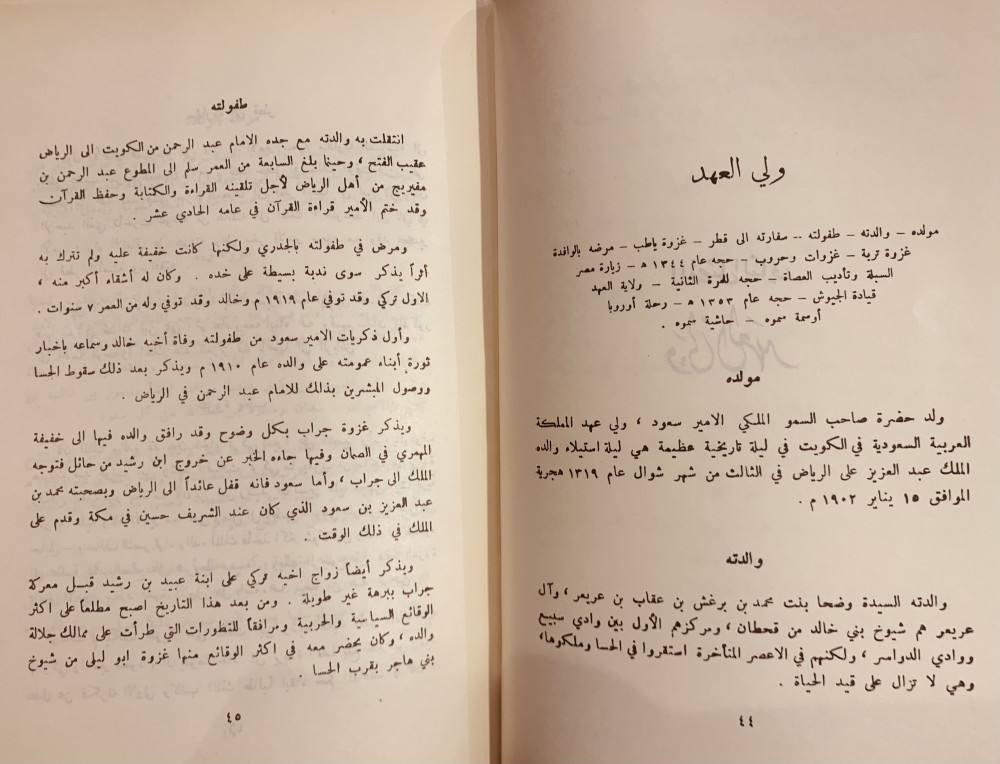 ولي العهد
مولده – والدته – طفولته -- سفارته الى قطر – غزوة ياطب – مرضه بالوافدة
غزوة تربة – غزوات وحروب – حجه عام ١٣٤٤ ه – زيارة مصر
السبلة وتأديب العصاة – حجه للمرة الثانية – ولاية العهد
قيادة الجيوش – حجه عام ١٣٥٣ ه – رحلة أوروبا
أوسمة سموه – حاشية سموه .
مولده
ولد حضرة صاحب السمو الملكي الامير سعود ، ولي عهد المملكة
العربية السعودية في الكويت في ليلة تاريخية عظيمة هي ليلة استيلاء والده
الملك عبد العزيز على الرياض في الثالث من شهر شوال عام ١٣١٩ هجرية
الموافق ١٥ يناير ١٩٠٢ م .
والدته
والدته السيدة وضحا بنت محمد بن برغش بن عقاب بن عريعر ، وآل
عريعر هم شيوخ بني خالد من قحطان ، ومركزهم الأول بين وادي سبيع
ووادي الدواسر ، ولكنهم في الاعصر المتأخرة استقروا في الحسا وملكوها ،
وهي لا تزال على قيد الحياة .
٤٤
طفولته
انتقلت به والدته مع جده الامام عبد الرحمن من الكويت الى الرياض
عقيب الفتح ، وحينما بلغ السابعة من العمر سلم الى المطوع عبد الرحمن بن
مفيريج من أهل الرياض لأجل تلقينه القراءة والكتابة وحفظ القرآن
وقد ختم الأمير قراءة القرآن في عامه الحادي عشر .
ومرض في طفولته بالجدري ولكنها كانت خفيفة عليه ولم تترك به
أثراً يذكر سوى ندبة بسيطة على خده . وكان له أشقاء أكبر منه ،
الاول تركي وقد توفي عام ١٩١٩ م وخالد وقد توفي وله من العمر ٧ سنوات .
وأول ذكريات الامير سعود من طفولته وفاة أخيه خالد وسماعه باخبار
ثورة أبناء عمومته على والده عام ١٩١٠ م ويذكر بعد ذلك سقوط الحسا
ووصول المبشرين بذالك للامام عبد الرحمن في الرياض .
ويذكر غزوة جراب بكل وضوح وقد رافق والده فيها الى خفيفة
المهمري في الصمان وفيها جاءه الخبر عن خروج ابن رشيد من حائل فتوجه
الملك الى جراب ، وأما سعود فانه قفل عائداً الى الرياض وبصحبته محمد بن
عبد العزيز بن سعود الذي كان عند الشريف حسين في مكة وقدم على
الملك في ذلك الوقت .
ويذكر أيضاً زواج اخيه تركي على ابنة عبيد بن رشيد قبل معركة
جراب ببرهة غير طويلة . ومن بعد هذا التاريخ اصبح مطلعاً على اكثر
الوقائع السياسية والحربية ومرافقاً للتطورات التي طرأت على ممالك جلالة
والده ، وكان يحضر معه في اكثر الوقائع منها غزوة ابو ليلى من شيوخ
بني هاجر بقرب الحسا .
٤٥